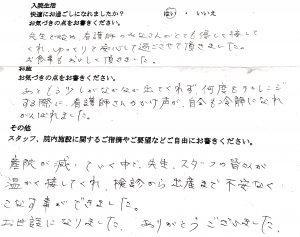 入院生活
快適にお過ごしになれましたか? はい・いいえ
お気づきの点をお書きください。
先生を始め、看護師のみなさんがとても優しく接して
くれ、ゆっくりと安心して過ごさせて頂きました。
お食事もおいしく頂きました。
お産
お気づきの点をお書きください。
あともう少しがなかなか出てくれず、何度もチャレンジ
する際に、看護師さんのかけ声が、自分も冷静になれ
がんばれました。
その他
スタッフ、院内施設に関するご指摘やご要望などご自由にお書きください。
産院が減っていく中で、先生、スタッフの皆さんが
温かく接してくれ、検診から出産まで不安なく
こなす事ができました。
お世話になりました。ありがとうございました。